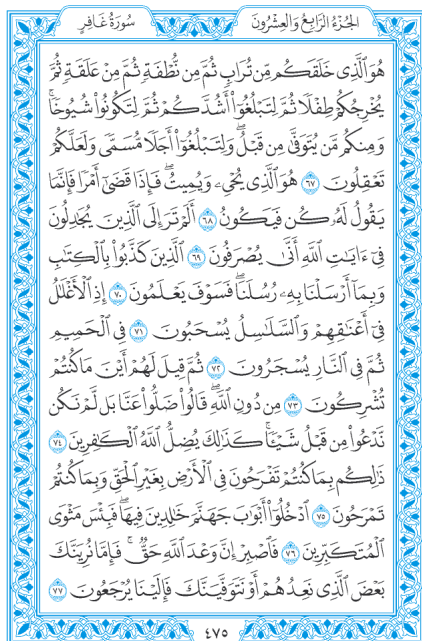 الجُزْءُ الرَّابِعُ وَالعِشْرُونَ
سُورَةُ غَافِرٍ
هُوَ ٱلَّذِى خَلَقَكُم مِّن تُرَابٍ ثُمَّ مِن نُّطْفَةٍ ثُمَّ مِنْ عَلَقَةٍ ثُمَّ
يُخْرِجُكُمْ طِفْلًا ثُمَّ لِتَبْلُغُوٓا۟ أَشُدَّكُمْ ثُمَّ لِتَكُونُوا۟ شُيُوخًا ۚ
وَمِنكُم مَّن يُتَوَفَّىٰ مِن قَبْلُ ۖ وَلِتَبْلُغُوٓا۟ أَجَلًا مُّسَمًّى وَلَعَلَّكُمْ
تَعْقِلُونَ ٦٧ هُوَ ٱلَّذِى يُحْىِۦ وَيُمِيتُ ۖ فَإِذَا قَضَىٰٓ أَمْرًا فَإِنَّمَا
يَقُولُ لَهُۥ كُن فَيَكُونُ ٦٨ أَلَمْ تَرَ إِلَى ٱلَّذِينَ يُجَٰدِلُونَ
فِىٓ ءَايَٰتِ ٱللَّهِ أَنَّىٰ يُصْرَفُونَ ٦٩ ٱلَّذِينَ كَذَّبُوا۟ بِٱلْكِتَٰبِ
وَبِمَآ أَرْسَلْنَا بِهِۦ رُسُلَنَا ۖ فَسَوْفَ يَعْلَمُونَ ٧٠ إِذِ ٱلْأَغْلَٰلُ
فِىٓ أَعْنَٰقِهِمْ وَٱلسَّلَٰسِلُ يُسْحَبُونَ ٧١ فِى ٱلْحَمِيمِ
ثُمَّ فِى ٱلنَّارِ يُسْجَرُونَ ٧٢ ثُمَّ قِيلَ لَهُمْ أَيْنَ مَا كُنتُمْ
تُشْرِكُونَ ٧٣ مِن دُونِ ٱللَّهِ ۖ قَالُوا۟ ضَلُّوا۟ عَنَّا بَل لَّمْ نَكُن
نَّدْعُوا۟ مِن قَبْلُ شَيْـًٔا ۚ كَذَٰلِكَ يُضِلُّ ٱللَّهُ ٱلْكَٰفِرِينَ ٧٤
ذَٰلِكُم بِمَا كُنتُمْ تَفْرَحُونَ فِى ٱلْأَرْضِ بِغَيْرِ ٱلْحَقِّ وَبِمَا كُنتُمْ
تَمْرَحُونَ ٧٥ ٱدْخُلُوٓا۟ أَبْوَٰبَ جَهَنَّمَ خَٰلِدِينَ فِيهَا ۖ فَبِئْسَ مَثْوَى
ٱلْمُتَكَبِّرِينَ ٧٦ فَٱصْبِرْ إِنَّ وَعْدَ ٱللَّهِ حَقٌّ ۚ فَإِمَّا نُرِيَنَّكَ
بَعْضَ ٱلَّذِى نَعِدُهُمْ أَوْ نَتَوَفَّيَنَّكَ فَإِلَيْنَا يُرْجَعُونَ ٧٧
٤٧٥